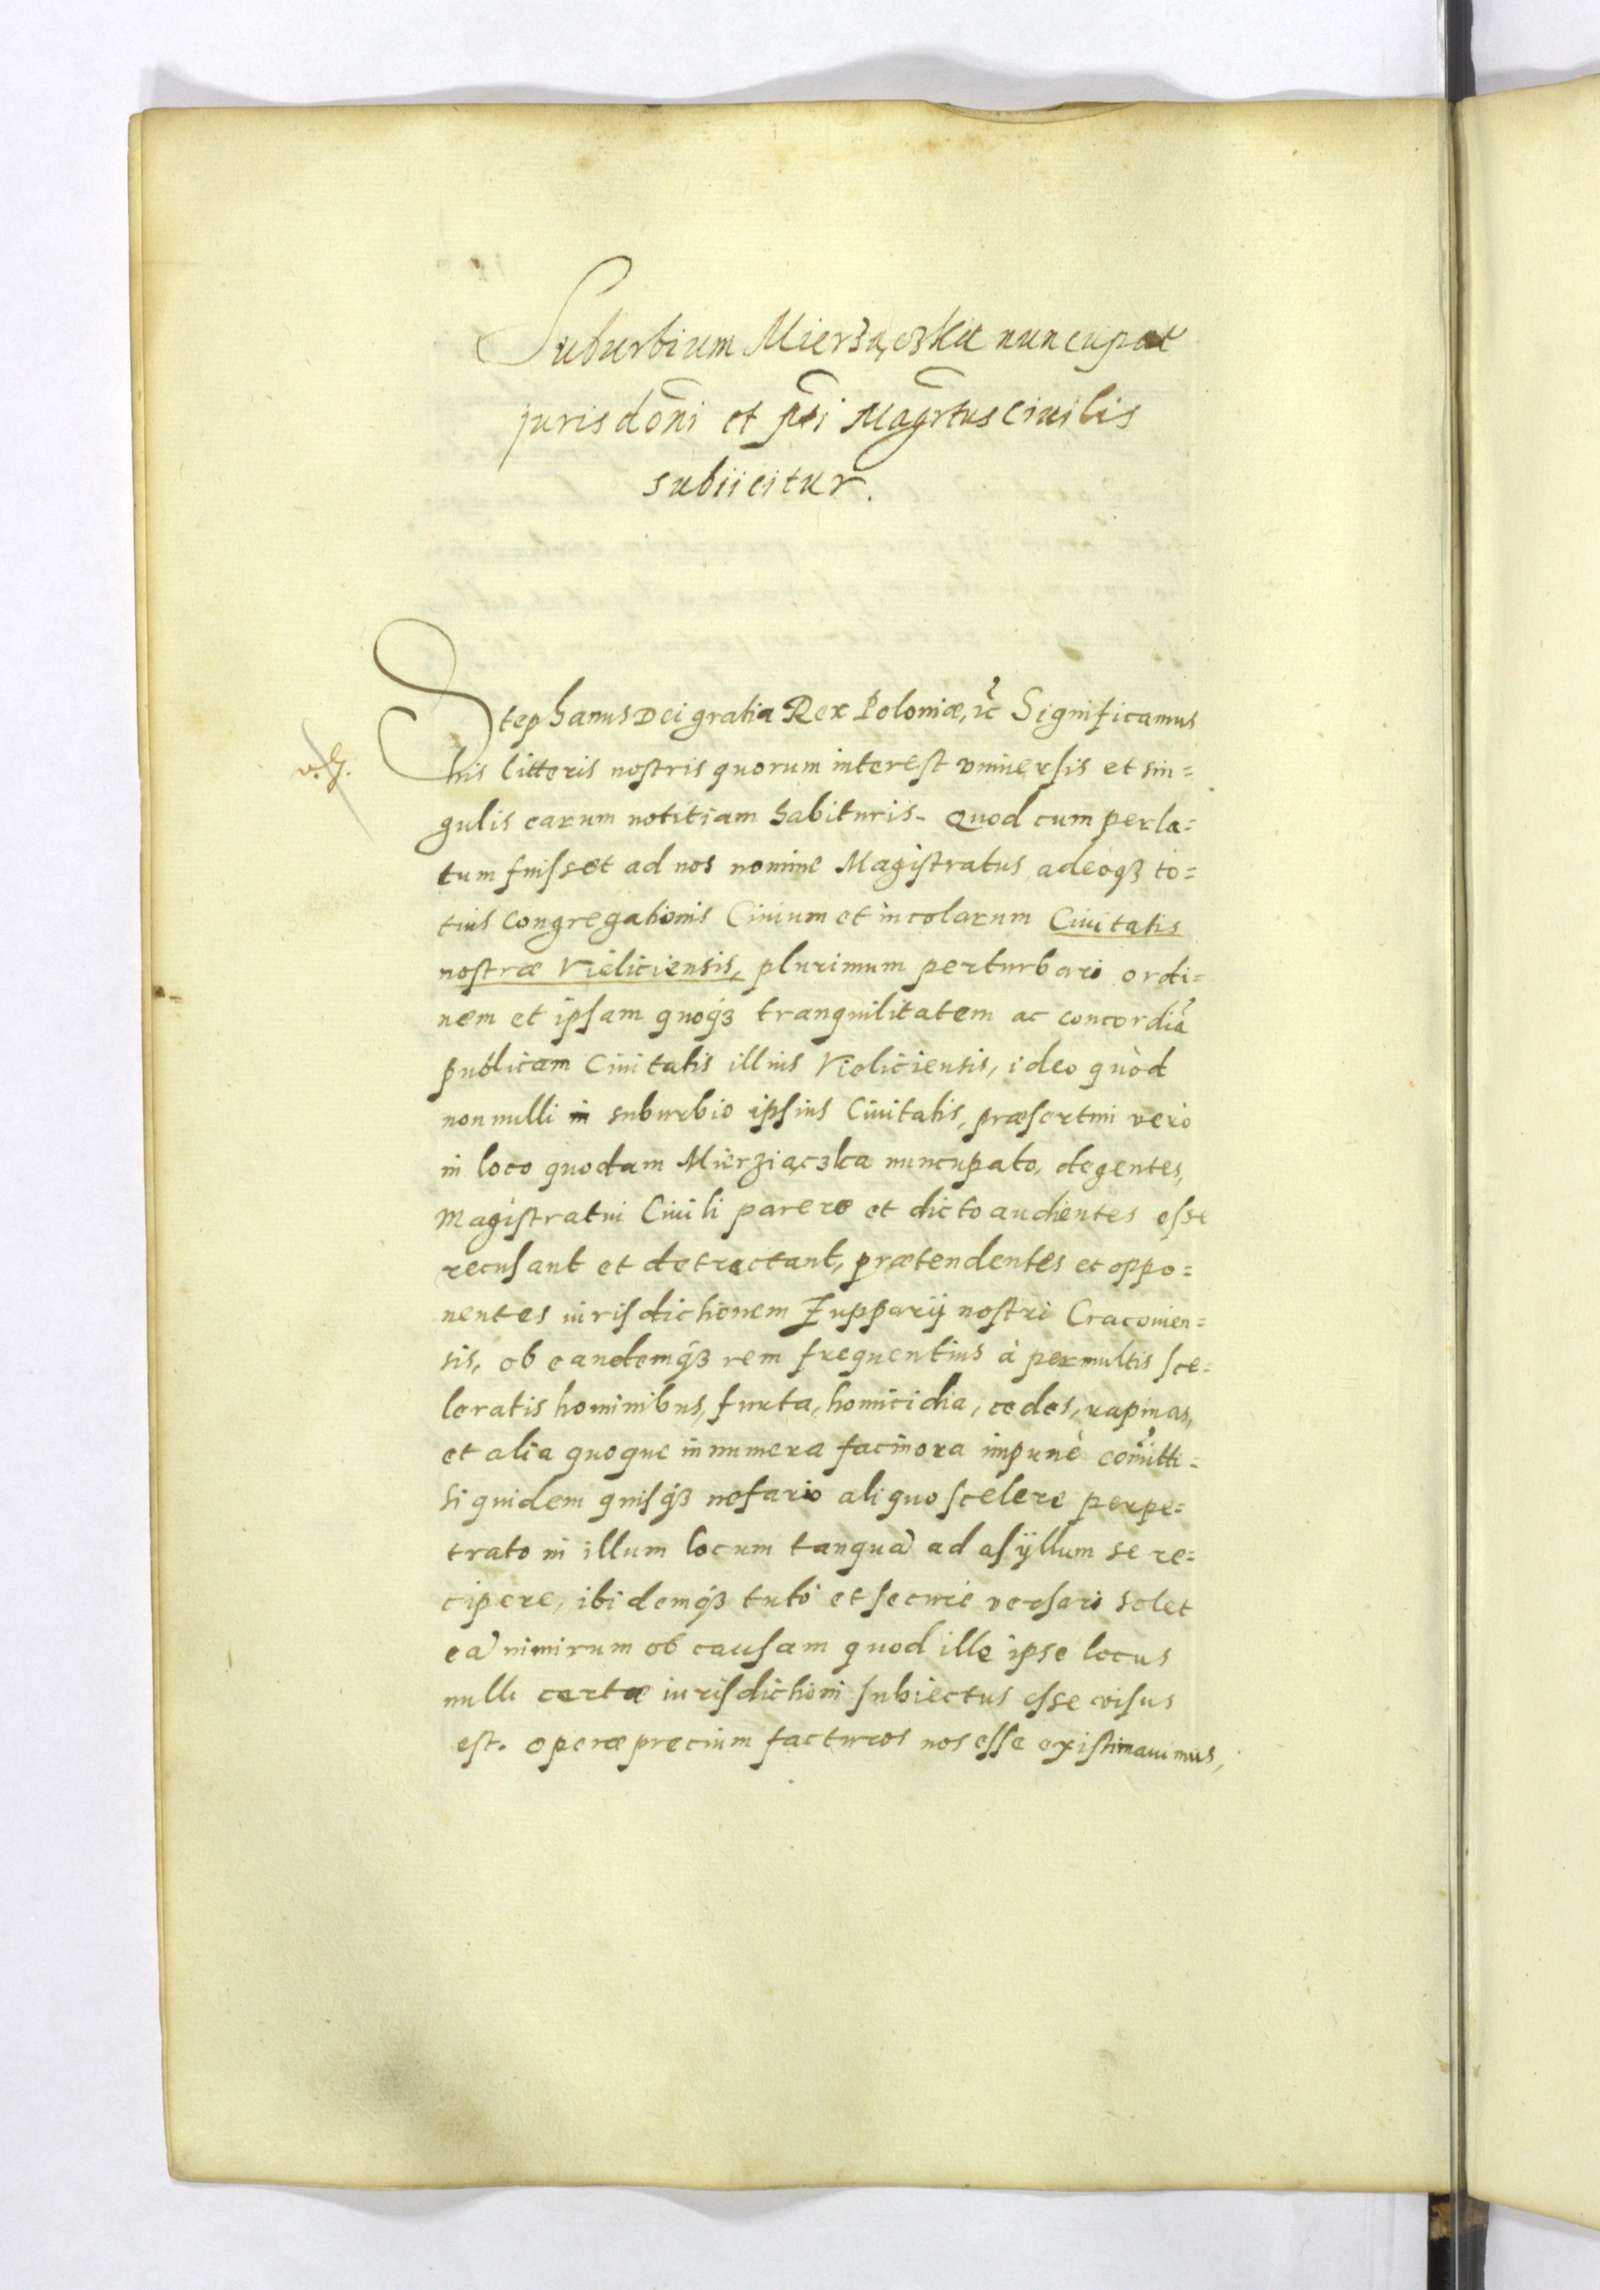 Suburbium Mierzączka nuncupat
jurisdoñi et pti Magrtus Ciuilis
subiicitur.
Stephanus Dei gratia Rex Poloniæ, &c Significamus
his litteris nostris quorum interest vniuersis et sin=
gulis earum notitiam habituris. Quod cum perla=
tum fuisset ad nos nomine Magistratus adeoqз to=
tius congregationis Ciuium et incolarum Ciuitatis
nostræ Vieliciensis, plurimum perturbari ordi=
nem et ipsam quoqз tranquilitatem ac concordiã
publicam Ciuitatis illius Vieliciensis, ideo quòd
nonnulli in suburbio ipsius Ciuitatis, præsertim verò
in loco quodam Mierziączka nuncupato, degentes,
Magistratui Ciuili parere et dicto audientes esse
recusant et detractant, prætendentes et oppo=
nentes iurisdictionem Zupparij nostri Cracouien=
sis, ob eandemqз rem frequentius à permultis sce=
leratis hominibus, furta, homicidia, cedes, rapinas,
et alia quoque innumera facinora impunè com̃itti=
siquidem quisqз nefario aliquo scelere perpe=
trato in illum locum tanquã ad asÿllum se re=
cipere, ibidemqз tutò et securè versari solet
eã nimirum ob causam quod ille ipse locus
nulli certæ iurisdictioni subiectus esse visus
est. operæprecium facturos nos esse existimauimus,